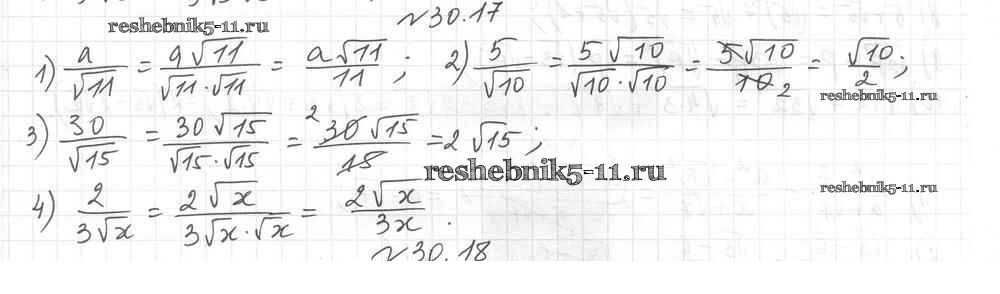 №30.17
reshebnik5-11.ru
1) a/√11 = a√11/(√11·√11) = a√11/11 ; 2) 5/√10 = 5√10/(√10·√10) = 5√10/10 2 = √10/2 ;
reshebnik5-11.ru
3) 30/√15 = 30√15/(√15·√15) = 2 30√15/15 = 2√15 ;
reshebnik5-11.ru
reshebnik5-11.ru
4) 2/(3√x) = 2√x/(3√x·√x) = 2√x/3x .
№30.18